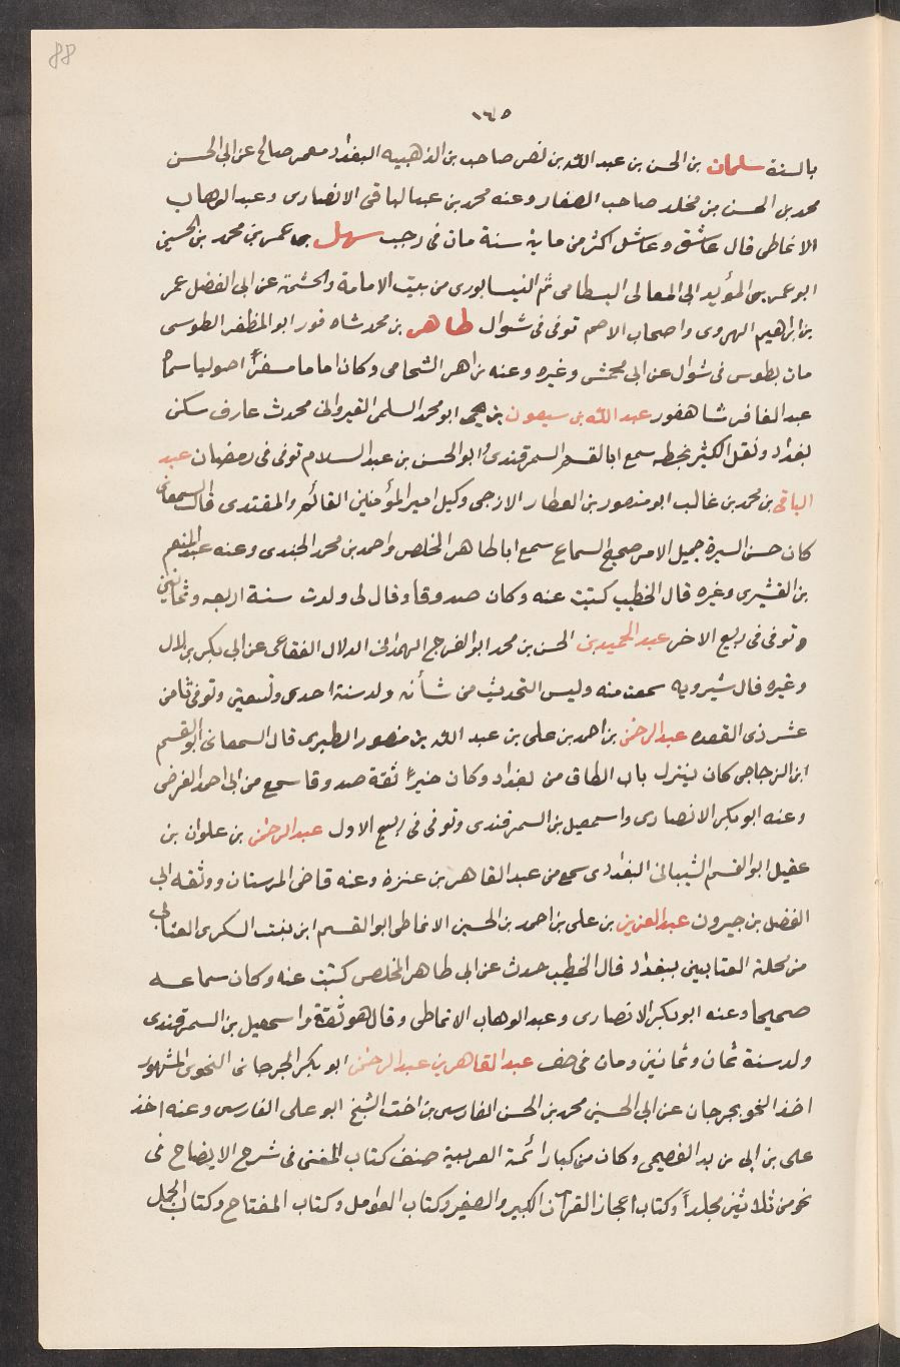 88
١٦٥
بالسنة سلمان بن الحسن بن عبد الله بن نصر صاحب بن الذهبيه البغداد معمر صالح عن ابى الحسن
محمد بن الحسن بن مخلد صاحب الصفار وعنه محمد بن عبد الباقى الانصارى وعبد الوهاب
الانماطى قال عاشق وعاش اكثر من ماية سنة مات فى رجب سهل بن عمر بن محمد بن الحسين
ابو عمر بن المؤيد ابى المعالى البسطامى ثم النيسابورى من بيت الامامة والحشمة عن ابى الفضل عمر
بن ابراهيم الهروى واصحاب الاصم توفى فى شوال طاهر بن محمد شاه فور ابو المظفر الطوسى
مات بطوس فى شوال عن ابى محمش وغيره وعنه زاهر الشحامى وكان اماما مفسرا اصوليا سماه
عبد الغافر شاهفور عبد الله بن سبعون بن يحيى ابو محمد السلمى القيروانى محدث عارف سكن
بغداد ونقل الكثير بخطه سمع ابا القسم السمرقندى وابو الحسن بن عبد السلام توفى فى رمضان عبد
الباقى بن محمد بن غالب ابو منصور بن العطار الازجى وكيل امير المؤمنين القائم والمقتدى قال السمعانى
كان حسن السيرة جميل الامر صحيح السماع سمع ابا طاهر المخلص واحمد بن محمد الجندى وعنه عبد المنعم
بن القشيرى وغيره قال الخطيب كتبت عنه وكان صدوقا وقال لى ولدت سنة اربعه وثمانين
وتوفى فى ربيع الاخر عبد الحميد بن الحسن بن محمد ابو الفرج الهمدانى الدلال الفقاعى عن ابى بكر بن لال
وغيره قال شيرويه سمعت منه وليس التحديث من شأنه ولد سنة احدى وتسعين وتوفى ثامن
عشر ذى القعده عبد الرحمن بن احمد بن على بن عبد الله بن منصور الطبرى قال السمعانى ابو القسم
ابن الزجاجى كان ينزل باب الطاق من بغداد وكان خيرا ثقة صدوقا سمع من ابى احمد الفرضى
وعنه ابو بكر الانصارى واسمعيل بن السمرقندى وتوفى فى ربيع الاول عبد الرحمن بن علوان بن
عقيل ابو القسم الشيبانى البغدادى سمع من عبد القاهر بن عنزة وعنه قاضى المرستان ووثقه ابى
الفضل بن جيرون عبد العزيز بن على بن احمد بن الحسين الانماطى ابو القسم ابن بنت السكرى العتابى
من محلة العتابيين ببغداد قال الخطيب حدث عن ابى طاهر المخلص كتبت عنه وكان سماعه
صحيحا وعنه ابو بكر الانصارى وعبد الوهاب الانماطى وقال هو ثقة واسمعيل بن السمرقندى
ولد سنة ثمان وثمانين ومات فى عبد القاهر بن عبد الرحمن ابو بكر الجرجانى النحوى المشهور
اخذ النحو بجرجان عن ابى الحسين محمد بن الحسن الفارسى بن اخت الشيخ ابو على الفارسى وعنه اخذ
على بن ابى زيد الفصيحى وكان من كبار ائمة العربية صنف كتاب المغنى فى شرح الايضاح فى
نحو من ثلاثين مجلدا وكتاب اعجاز القرآن الكبير والصغير وكتاب العوامل وكتاب المفتاح وكتاب الجمل